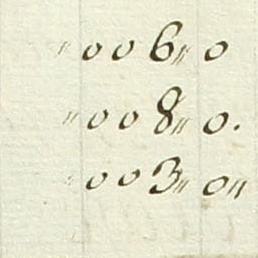 " 0 0 6 " 0
" 0 0 8 " 0.
" 0 0 3 " 0 "